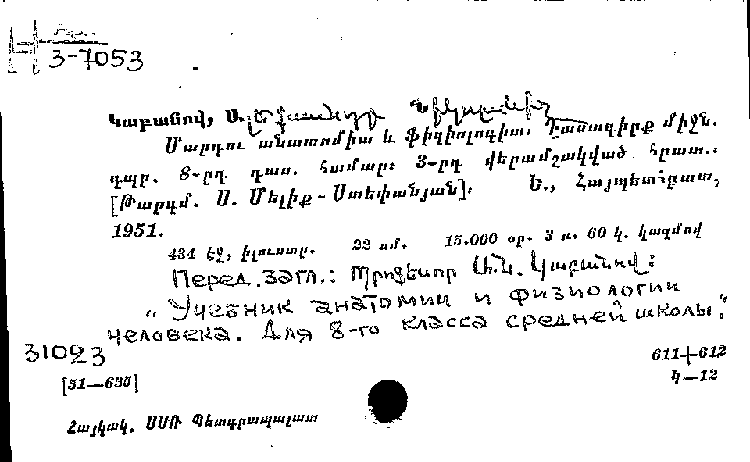 3-7053
Կաբանով, Ա.
Մարդու անատոմիա և ֆիզիոլոգիա. Դասագիրք միջն.
դպր. 8-րդ դաս. համար: 3-րդ վերամշակված հրատ.:
[Թարգմ. Ս. Մելիք-Ստեփանյան]: Ե., Հայպետհրատ,
1951.
434 էջ, իլյուստր. 22 սմ. 15.000 օր. 3 ռ. 60 կ. կազմով
Перед. загл.: Պրոֆեսոր Ա.Ն. Կաբանով:
„Учебник анатомии и физиологии
человека. Для 8-го класса средней школы".
31023
611+612
[51—635]
Կ—12
Հայկակ. ՍՍՌ Պետգրապալատ